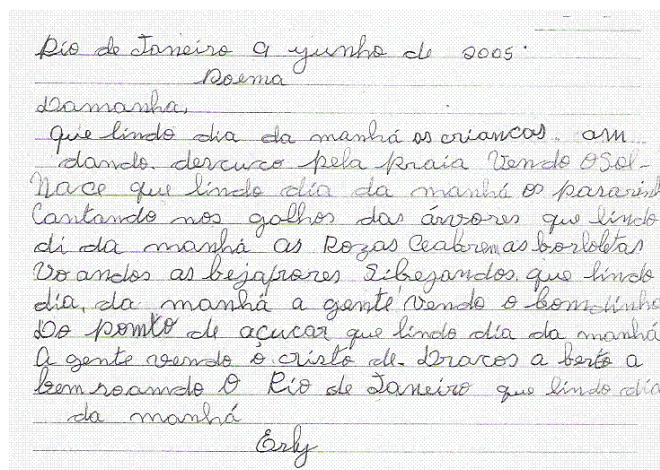 Rio de Janeiro 9 yunho de 2005.
Poema
Damanha,
que lindo dia da manhá as criancas. am
dando. descurco pela praia Vendo OSol-
Nace que lindo dia da manhá os pararinh
Cantando nos galhos das árvores que lindo
di da manhá as Rozas Ceabrem as borloletas
Vo andos as bejaprores Sibejandos. que lindo
dia, da manhá a gente vendo o bomdinho
Do pomto de açucar que lindo dia da manhá
A gente vendo o cristo de. Bracos a berto a
bemsoando O Rio de Janeiro que lindo dia
da manhá
Erly